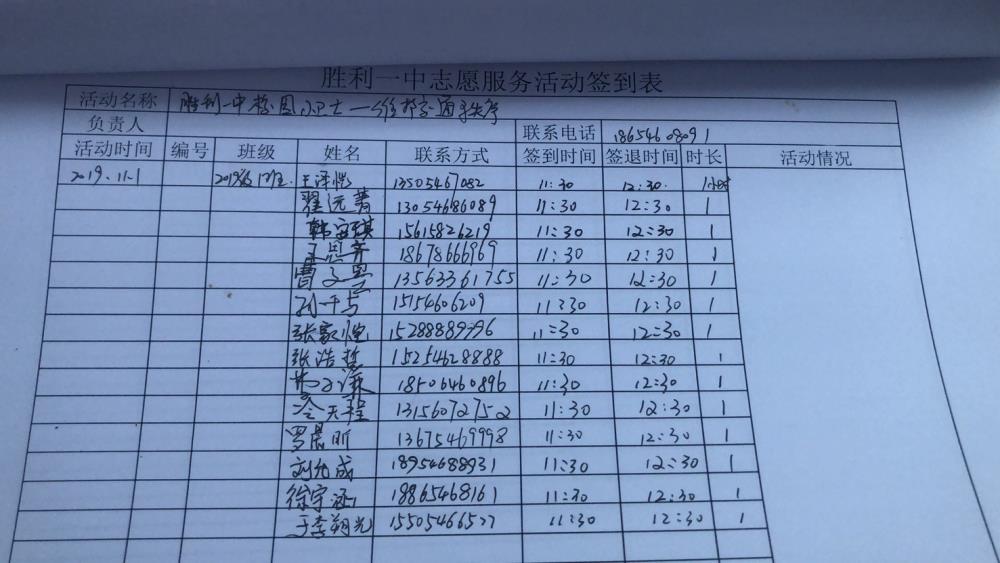 胜利一中志愿服务活动签到表
活动名称 胜利一中校园小卫士——维护交通秩序
负责人 联系电话 18654608091
活动时间 编号 班级 姓名 联系方式 签到时间 签退时间 时长 活动情况
2019.11.1 2019级17班 王泽恺 13505467082 11:30 12:30 1小时
翟远菁 13054686089 11:30 12:30 1
韩宜琪 15615826219 11:30 12:30 1
王思齐 18678666969 11:30 12:30 1
曹文昱 13563361755 11:30 12:30 1
孙一与 15154606209 11:30 12:30 1
张家恺 15288889996 11:30 12:30 1
张浩哲 15254628888 11:30 12:30 1
18506460896 11:30 12:30 1
冷天程 13156072752 11:30 12:30 1
罗晨昕 13675469998 11:30 12:30 1
刘允成 18954688931 11:30 12:30 1
徐宇涵 18865468161 11:30 12:30 1
于李翔光 15505466577 11:30 12:30 1